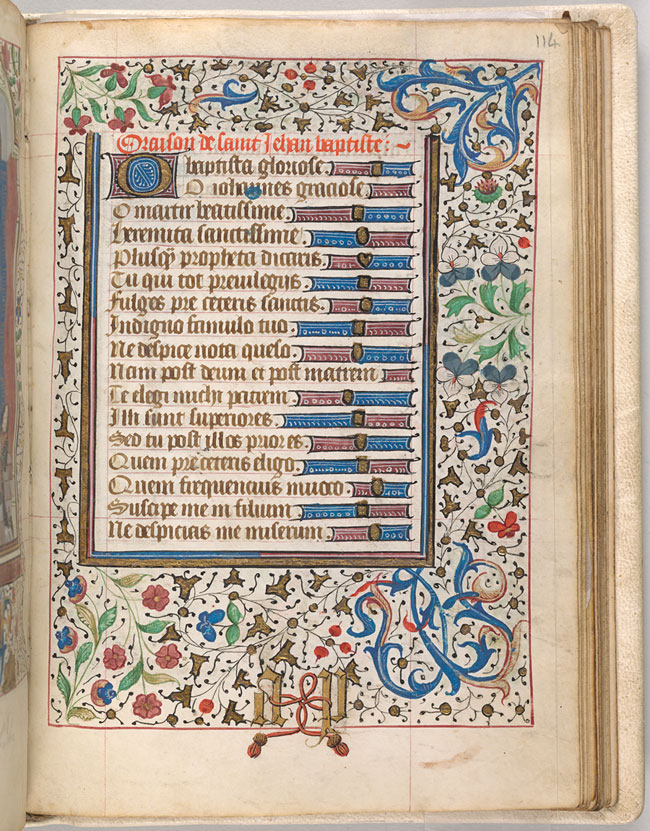 114
Oraison de saint Jehan baptiste :
O baptista gloriose .
O iohannes graciose
O martir beatissime .
Heremita sanctissime .
Plusq̃ propheta diceris
Tu qui tot preuilegiis .
Fulges pre ceteris sanctis .
Indigno famulo tuo .
Ne despice uota queso .
Nam post deum et post matrem
Te elegi michi patrem .
Illi sunt superiores .
Sed tu post illos priores .
Quem pre ceteris eligo .
Quem frequencius inuoco .
Suscipe me in filium
Ne despicias me miserum .
a p